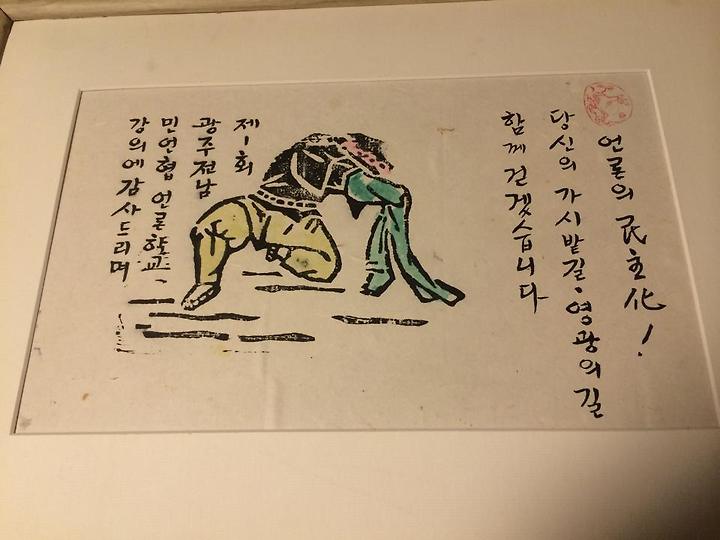 언론의 民主化!
당신의 가시밭길·영광의 길
함께 걷겠습니다
제1회
광주전남
민언협 언론학교
강의에 감사드리며